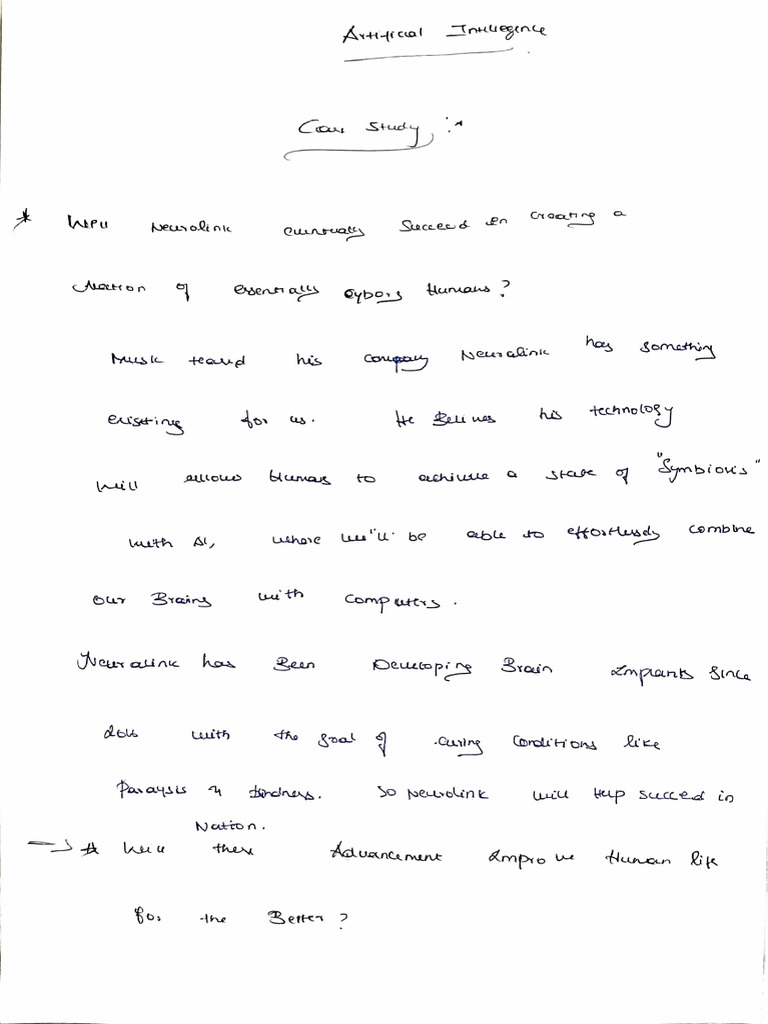 Artificial Intelligence
Case Study :*
* Will Neurolink eventually Succeed in creating a
Nation of essentially cyborg Humans?
Musk his company Neuralink has something
for us. He Belives his technology
will allows Humans to achieve a state of "Symbiosis"
with AI, where we"ll be able to effortlessly combine
our Brains with computers.
Neuralink has Been Developing Brain Implants Since
with the goal of curing conditions like
Paraysis & So Neurolink will Help succed in
Nation.
→ * Will these Advancement Improve Human life
for the Better?